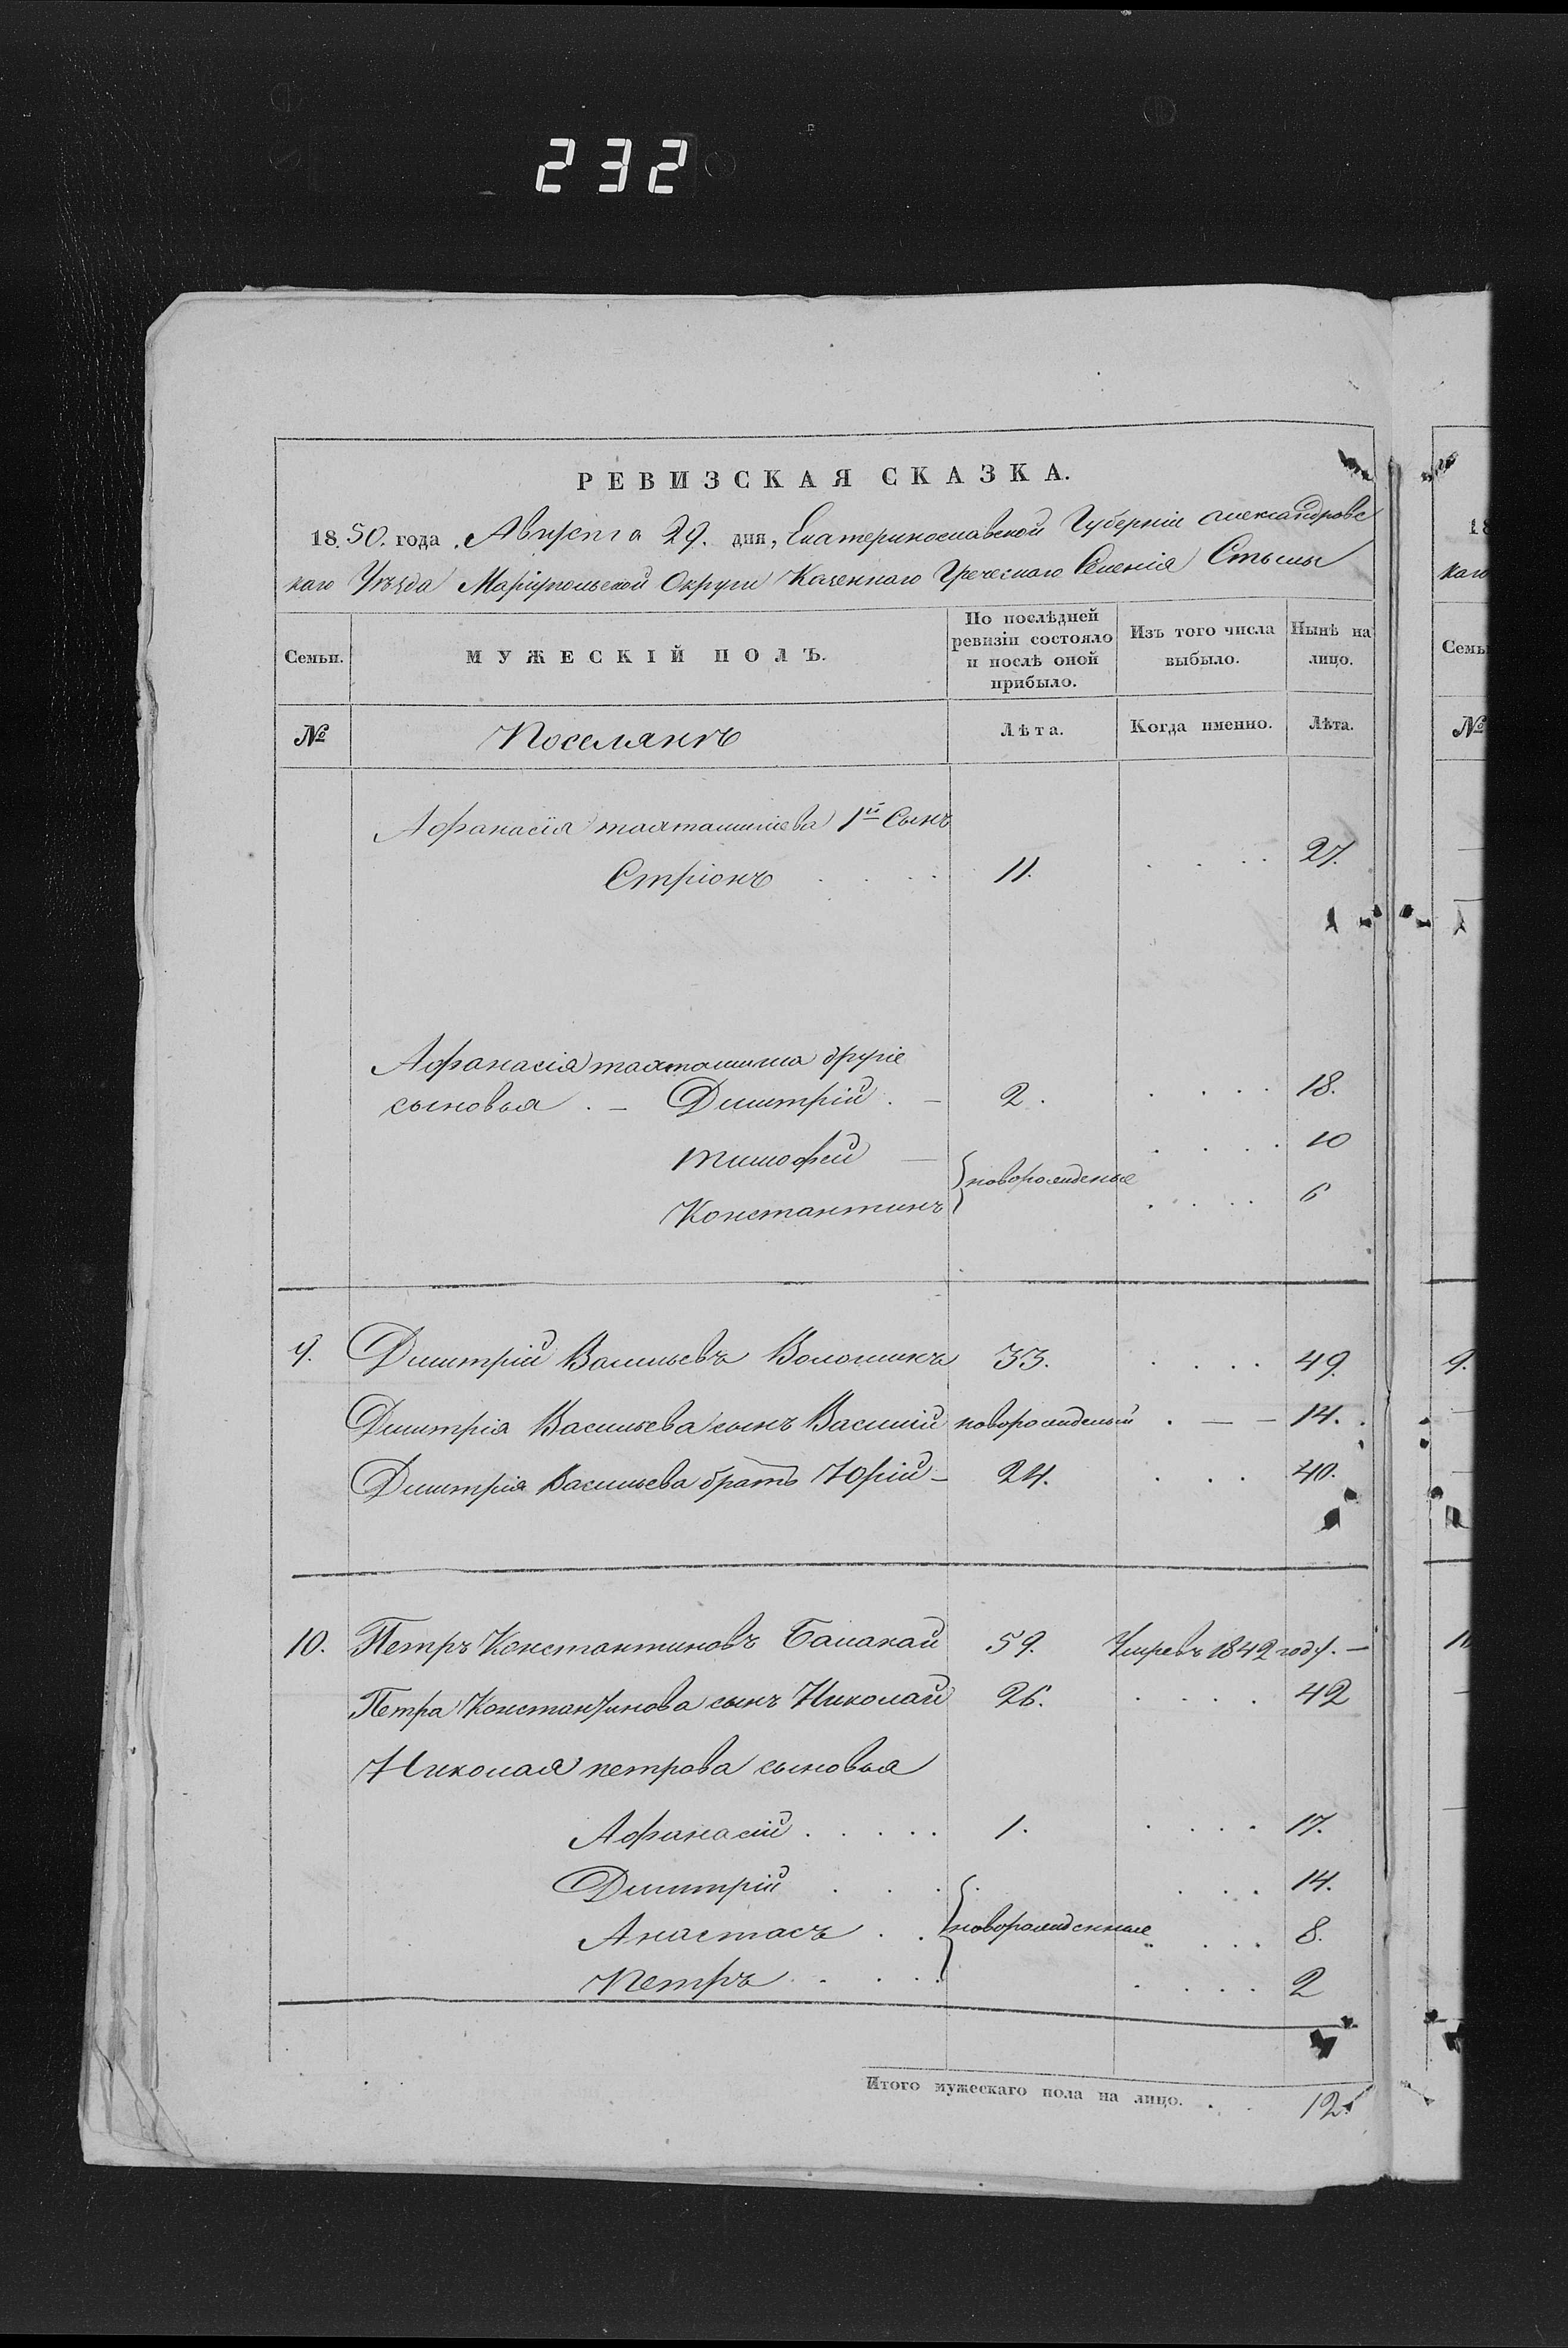 232
РЕВИЗСКАЯ СКАЗКА.
1850. года Августа 29. дня, Екатеринославской Губерніи Александровс
каго Уѣзда Маріупольской Округи Казеннаго Греческаго Селенія Стылы
Семьи. МУЖЕСКІЙ ПОЛЪ. По послѣдней ревизіи состояло и послѣ оной прибыло. Изъ того числа выбыло. Нынѣ на лицо.
№ Поселянъ Лѣта. Когда именно. Лѣта.
Афанасія 1й Сынъ
Стріонъ 11. 27.
Афанасія другіе
сыновья Дмитрій 2. 18.
Тимофей 10
новорожденые
Константинъ 6
9. Дмитрій Васильевъ Волошинъ 33. 49.
Дмитрія Васильева сынъ Василій новорожденый 14.
Дмитрія Васильева братъ Юрій 24. 40.
10. Петръ Константиновъ Балакай 59. Умре въ 1842 году.
Петра Константинова сынъ Николай 26. 42
Николая петрова сыновья
Афанасій 1. 17.
Дмитрій 14.
Анастасъ новорожденные 8.
Петръ 2
Итого мужескаго пола на лицо. 12.